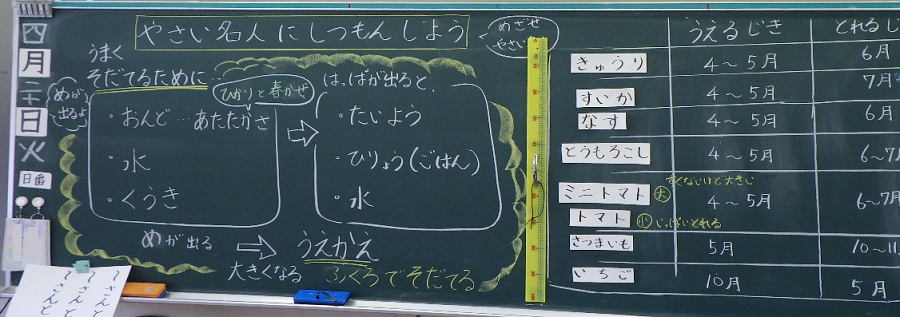 四
月
二十
日
火
日番
やさい名人にしつもんしよう
めざせ
やさい
うまく
そだてるために…
めが
出るよ
ひかりと春かぜ
・おんど…あたたかさ
・水
・くうき
はっぱが出ると、
・たいよう
・ひりょう(ごはん)
・水
めが出る
うえかえ
大きくなる
ふくろでそだてる
うえるじき とれるじ
きゅうり 4〜5月 6月
すいか 4〜5月 7月
なす 4〜5月 6月
とうもろこし 4〜5月 6〜7月
ミニトマト 大 すくないけど大きい
トマト 小 いっぱいとれる
4〜5月 6〜7月
さつまいも 5月 10〜11
いちご 10月 5月
〜さんと
〜さんと、
〜さんと